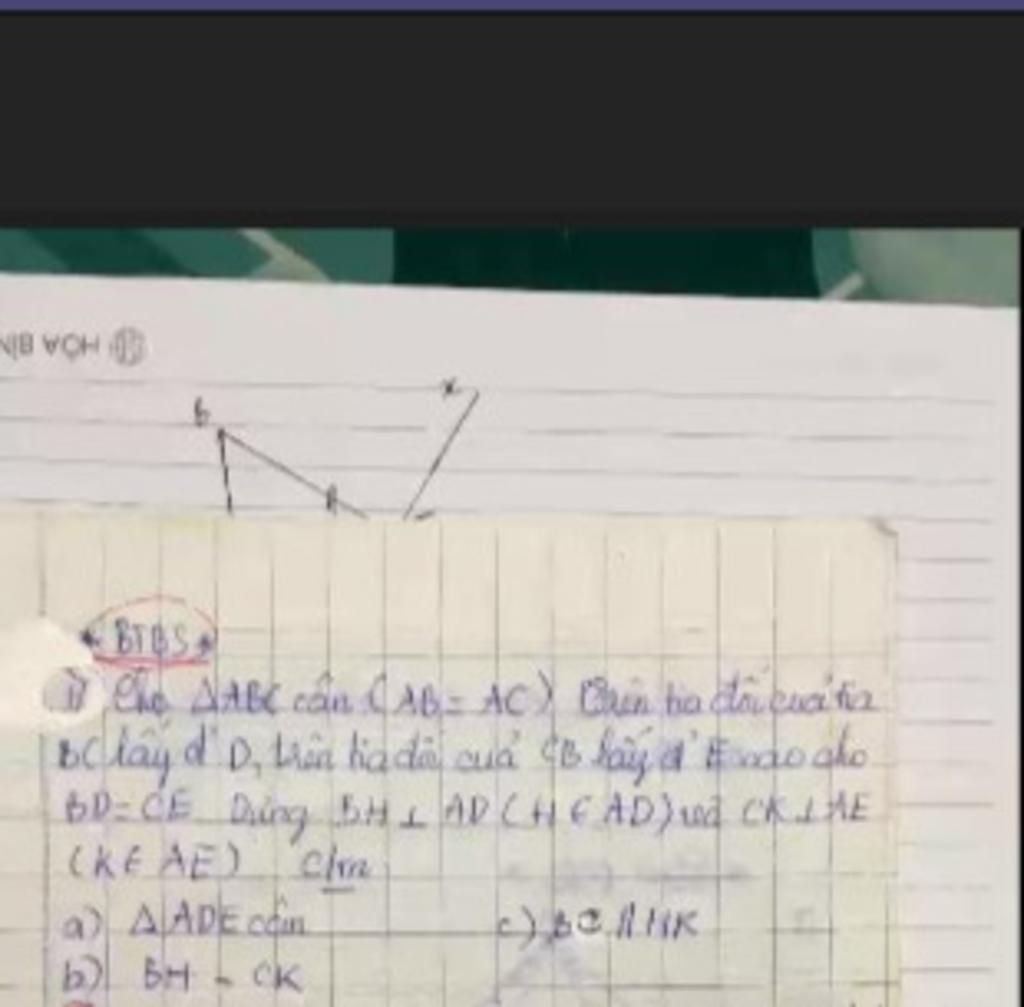 HÒA BÌN
B
x
* BTBS *
1) Cho ΔABC cân (AB = AC) Trên tia đối của tia
BC lấy đ' D, trên tia đối của CB lấy đ' E sao cho
BD = CE Dựng BH ⊥ AD (H ∈ AD) và CK ⊥ AE
(K ∈ AE) C/m
a) ΔADE cân
c) BC // HK
b) BH = CK